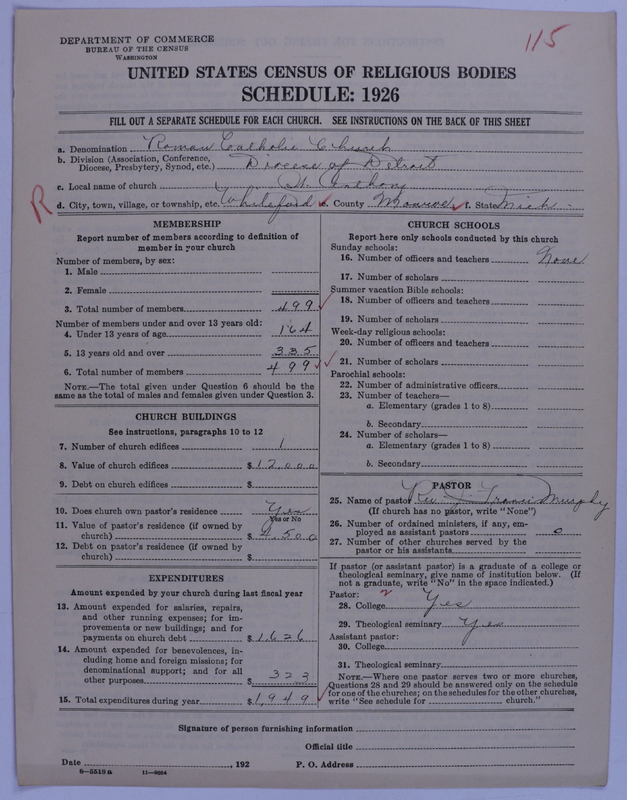 DEPARTMENT OF COMMERCE
BUREAU OF THE CENSUS
WASHINGTON
115
UNITED STATES CENSUS OF RELIGIOUS BODIES
SCHEDULE: 1926
FILL OUT A SEPARATE SCHEDULE FOR EACH CHURCH. SEE INSTRUCTIONS ON THE BACK OF THIS SHEET
a. Denomination Roman Catholic Church
b. Division (Association, Conference,
Diocese, Presbytery, Synod, etc.) Diocese of Detroit
c. Local name of church St. Anthony
R
d. City, town, village, or township, etc. Whiteford e. County Monroe f. State Mich.
MEMBERSHIP
Report number of members according to definition of
member in your church
Number of members, by sex:
1. Male
2. Female
3. Total number of members 499
Number of members under and over 13 years old:
4. Under 13 years of age 164
5. 13 years old and over 335
6. Total number of members 499
NOTE.—The total given under Question 6 should be the
same as the total of males and females given under Question 3.
CHURCH BUILDINGS
See instructions, paragraphs 10 to 12
7. Number of church edifices 1
8. Value of church edifices $12,000
9. Debt on church edifices $
10. Does church own pastor's residence Yes
Yes or No
11. Value of pastor's residence (if owned by
church) $4,500
12. Debt on pastor's residence (if owned by
church) $
EXPENDITURES
Amount expended by your church during last fiscal year
13. Amount expended for salaries, repairs,
and other running expenses; for im-
provements or new buildings; and for
payments on church debt $1626
14. Amount expended for benevolences, in-
cluding home and foreign missions; for
denominational support; and for all
other purposes $323
15. Total expenditures during year $1,949
CHURCH SCHOOLS
Report here only schools conducted by this church
Sunday schools:
16. Number of officers and teachers None
17. Number of scholars
Summer vacation Bible schools:
18. Number of officers and teachers
19. Number of scholars
Week-day religious schools:
20. Number of officers and teachers
21. Number of scholars
Parochial schools:
22. Number of administrative officers
23. Number of teachers—
a. Elementary (grades 1 to 8)
b. Secondary
24. Number of scholars—
a. Elementary (grades 1 to 8)
b. Secondary
PASTOR
25. Name of pastor Rev. J. Francis Murphy
(If church has no pastor, write "None")
26. Number of ordained ministers, if any, em-
ployed as assistant pastors 0
27. Number of other churches served by the
pastor or his assistants
If pastor (or assistant pastor) is a graduate of a college or
theological seminary, give name of institution below. (If
not a graduate, write "No" in the space indicated.)
Pastor: 2
28. College Yes
29. Theological seminary Yes
Assistant pastor:
30. College
31. Theological seminary
NOTE.—Where one pastor serves two or more churches,
Questions 28 and 29 should be answered only on the schedule
for one of the churches; on the schedules for the other churches,
write "See schedule for church."
Signature of person furnishing information
Official title
Date , 192 P. O. Address
8—5518a 11—9664